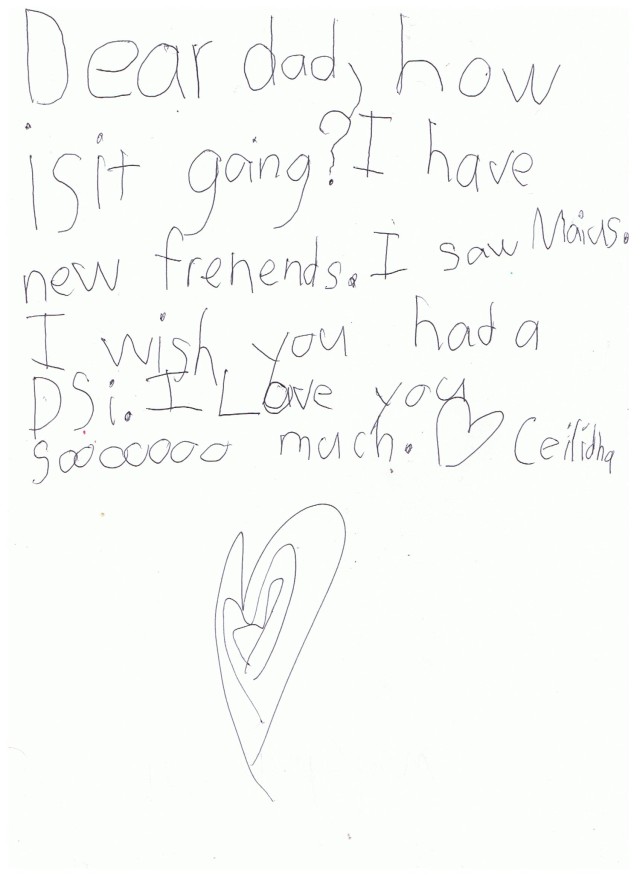 Dear dad, how
isit going? I have
new frehends. I saw Maius.
I wish you had a
DSi. I Love you
sooooooo much. Ceilidha